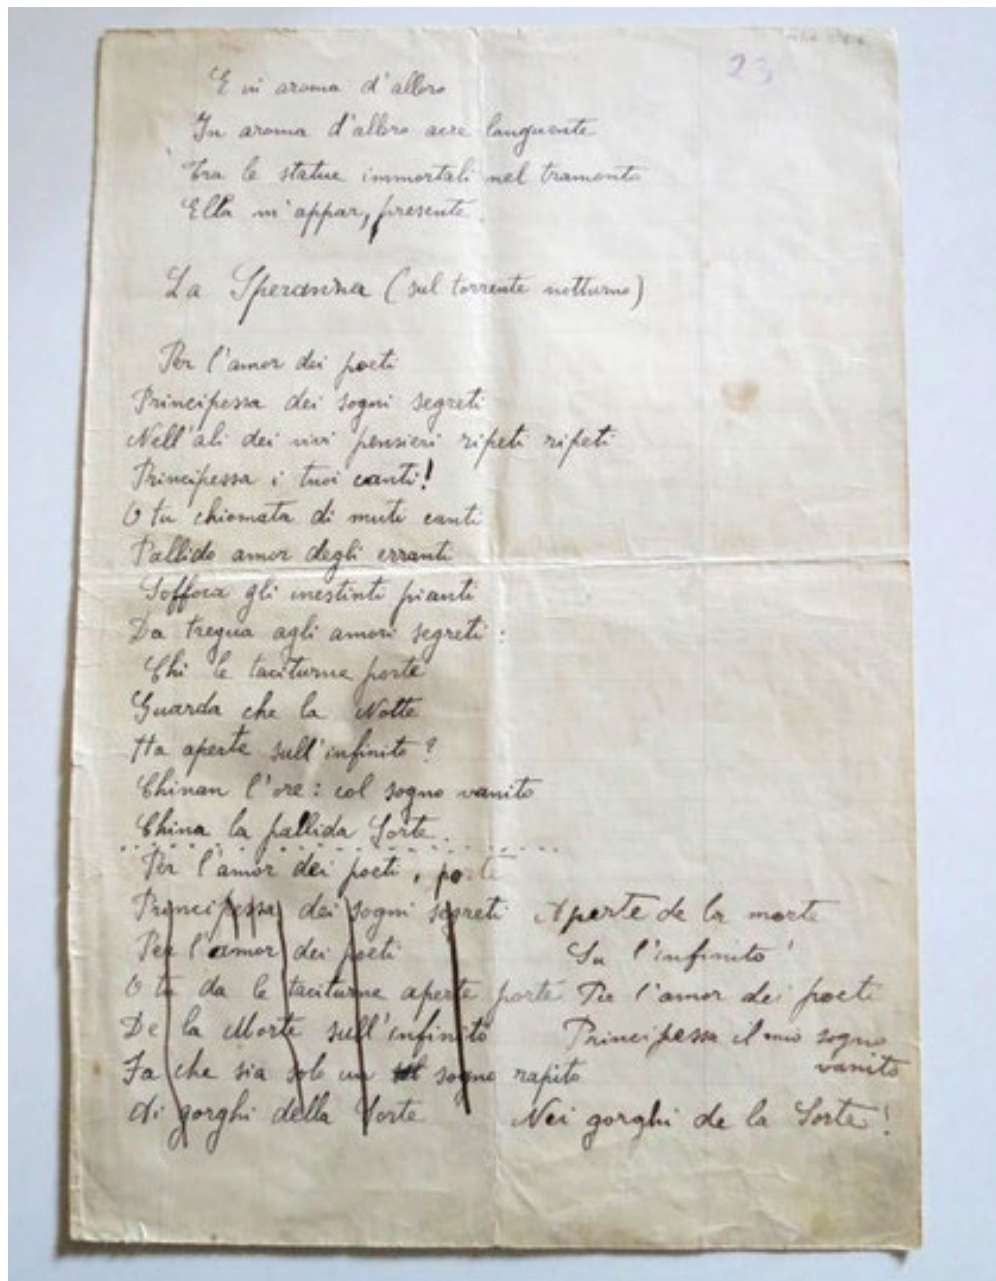 23
E in aroma d'alloro
In aroma d'alloro acre languente
Tra le statue immortali nel tramonto
Ella m'appar, presente.
La Speranza (sul torrente notturno)
Per l'amor dei poeti
Principessa dei sogni segreti
Nell'ali dei vivi pensieri ripeti ripeti
Principessa i tuoi canti!
O tu chiomata di muti canti
Pallido amor degli erranti
Soffoca gli inestinti pianti
Da tregua agli amori segreti:
Chi le taciturne porte
Guarda che la Notte
Ha aperte sull'infinito?
Chinan l'ore: col sogno vanito
China la pallida Sorte.
Per l'amor dei poeti, porte
Principessa dei sogni segreti
Per l'amor dei poeti
O tu da le taciturne aperte porte
De la Morte sull'infinito
Fa che sia solo un sogno rapito
Ai gorghi della Sorte
Aperte de la morte
Su l'infinito!
Per l'amor dei poeti
Principessa il mio sogno
vanito
Nei gorghi de la Sorte!